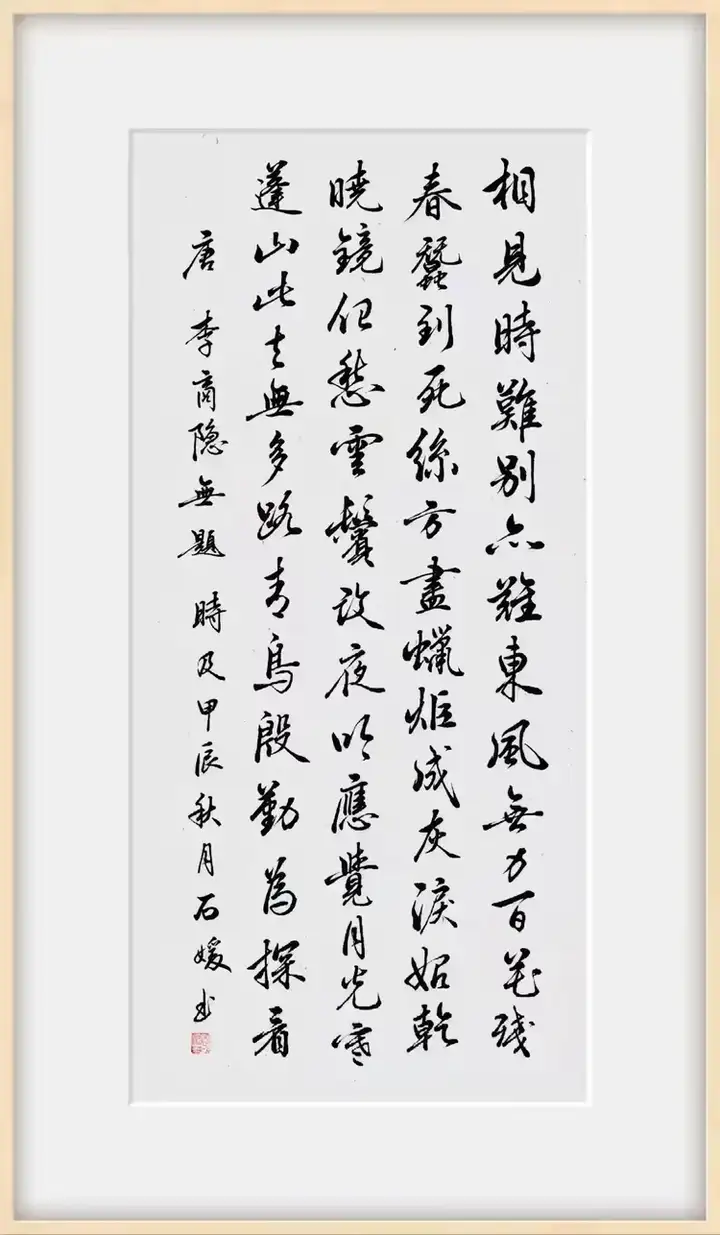 相見時難別亦難東風無力百花殘
春蠶到死絲方盡蠟炬成灰淚始乾
曉鏡但愁雲鬢改夜吟應覺月光寒
蓬山此去無多路青鳥殷勤為探看
唐 李商隐無題 時及甲辰秋月石媛书